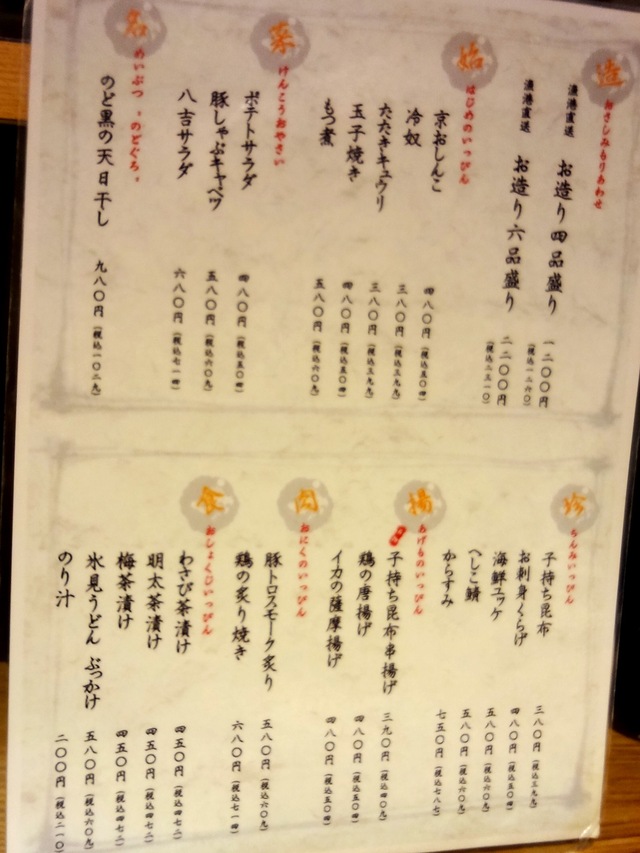 造
おさしみもりあわせ
漁港直送 お造り四品盛り 一二〇〇円(税込一二六〇)
漁港直送 お造り六品盛り 二二〇〇円(税込二三一〇)
始
はじめのいっぴん
京おしんこ 四八〇円(税込五〇四)
冷奴 三八〇円(税込三九九)
たたきキュウリ 三八〇円(税込三九九)
玉子焼き 四八〇円(税込五〇四)
もつ煮 五八〇円(税込六〇九)
菜
けんこうおやさい
ポテトサラダ 四八〇円(税込五〇四)
豚しゃぶキャベツ 五八〇円(税込六〇九)
八吉サラダ 六八〇円(税込七一四)
名
めいぶつ 〝のどぐろ〟
のど黒の天日干し 九八〇円(税込一〇二九)
珍
ちんみいっぴん
子持ち昆布 三八〇円(税込三九九)
お刺身くらげ 四八〇円(税込五〇四)
海鮮ユッケ 五八〇円(税込六〇九)
へしこ鯖 五八〇円(税込六〇九)
からすみ 七五〇円(税込七八七)
揚
あげものいっぴん
子持ち昆布串揚げ 三九〇円(税込四〇九)
鶏の唐揚げ 四八〇円(税込五〇四)
イカの薩摩揚げ 四八〇円(税込五〇四)
肉
おにくのいっぴん
豚トロスモーク炙り 五八〇円(税込六〇九)
鶏の炙り焼き 六八〇円(税込七一四)
食
おしょくじいっぴん
わさび茶漬け 四五〇円(税込四七二)
明太茶漬け 四五〇円(税込四七二)
梅茶漬け 四五〇円(税込四七二)
氷見うどん ぶっかけ 五八〇円(税込六〇九)
のり汁 二〇〇円(税込二一〇)